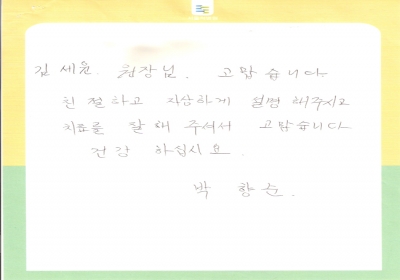 김세윤 원장님. 고맙습니다
친절하고 자상하게 설명해주시고
치료를 잘해 주셔서 고맙습니다
건강 하십시요.
박 향순.